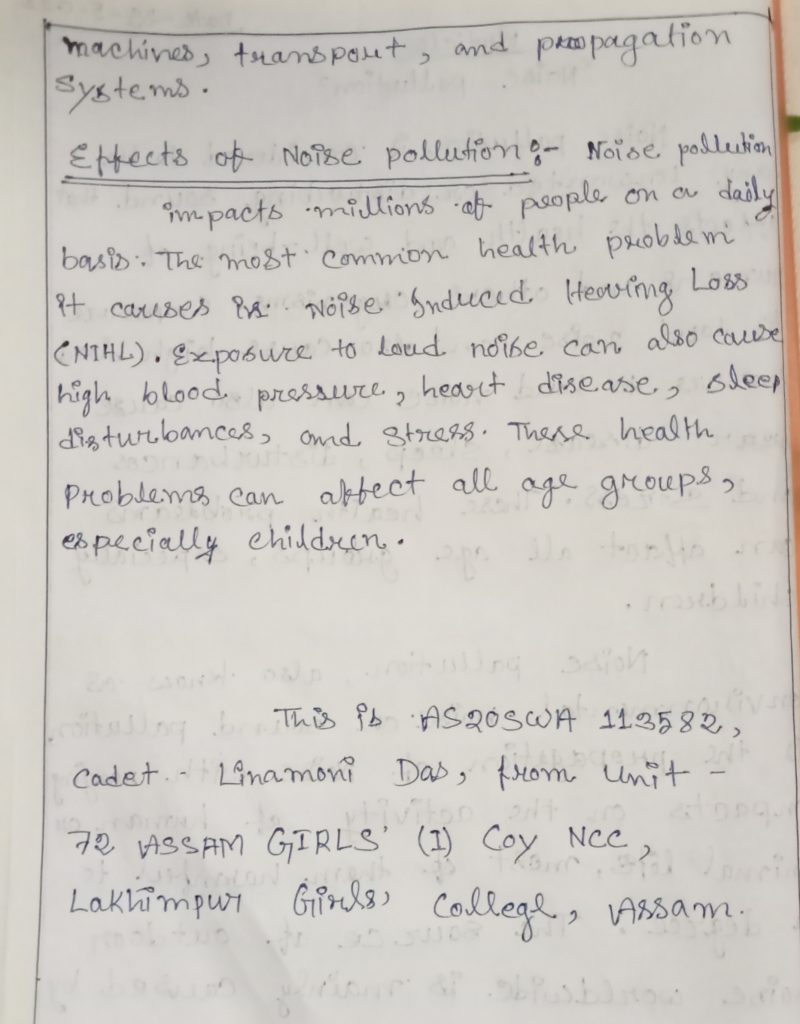 machines, transport, and propagation
systems.
Effects of Noise pollution :- Noise pollution
impacts millions of people on a daily
basis. The most common health problem
it causes is Noise Induced Hearing Loss
(NIHL). Exposure to loud noise can also cause
high blood pressure, heart disease, sleep
disturbances, and stress. These health
problems can affect all age groups,
especially children.
This is AS20SWA 113582,
Cadet - Linamoni Das, from unit -
72 ASSAM GIRLS' (I) Coy NCC,
Lakhimpur Girls' College, Assam.